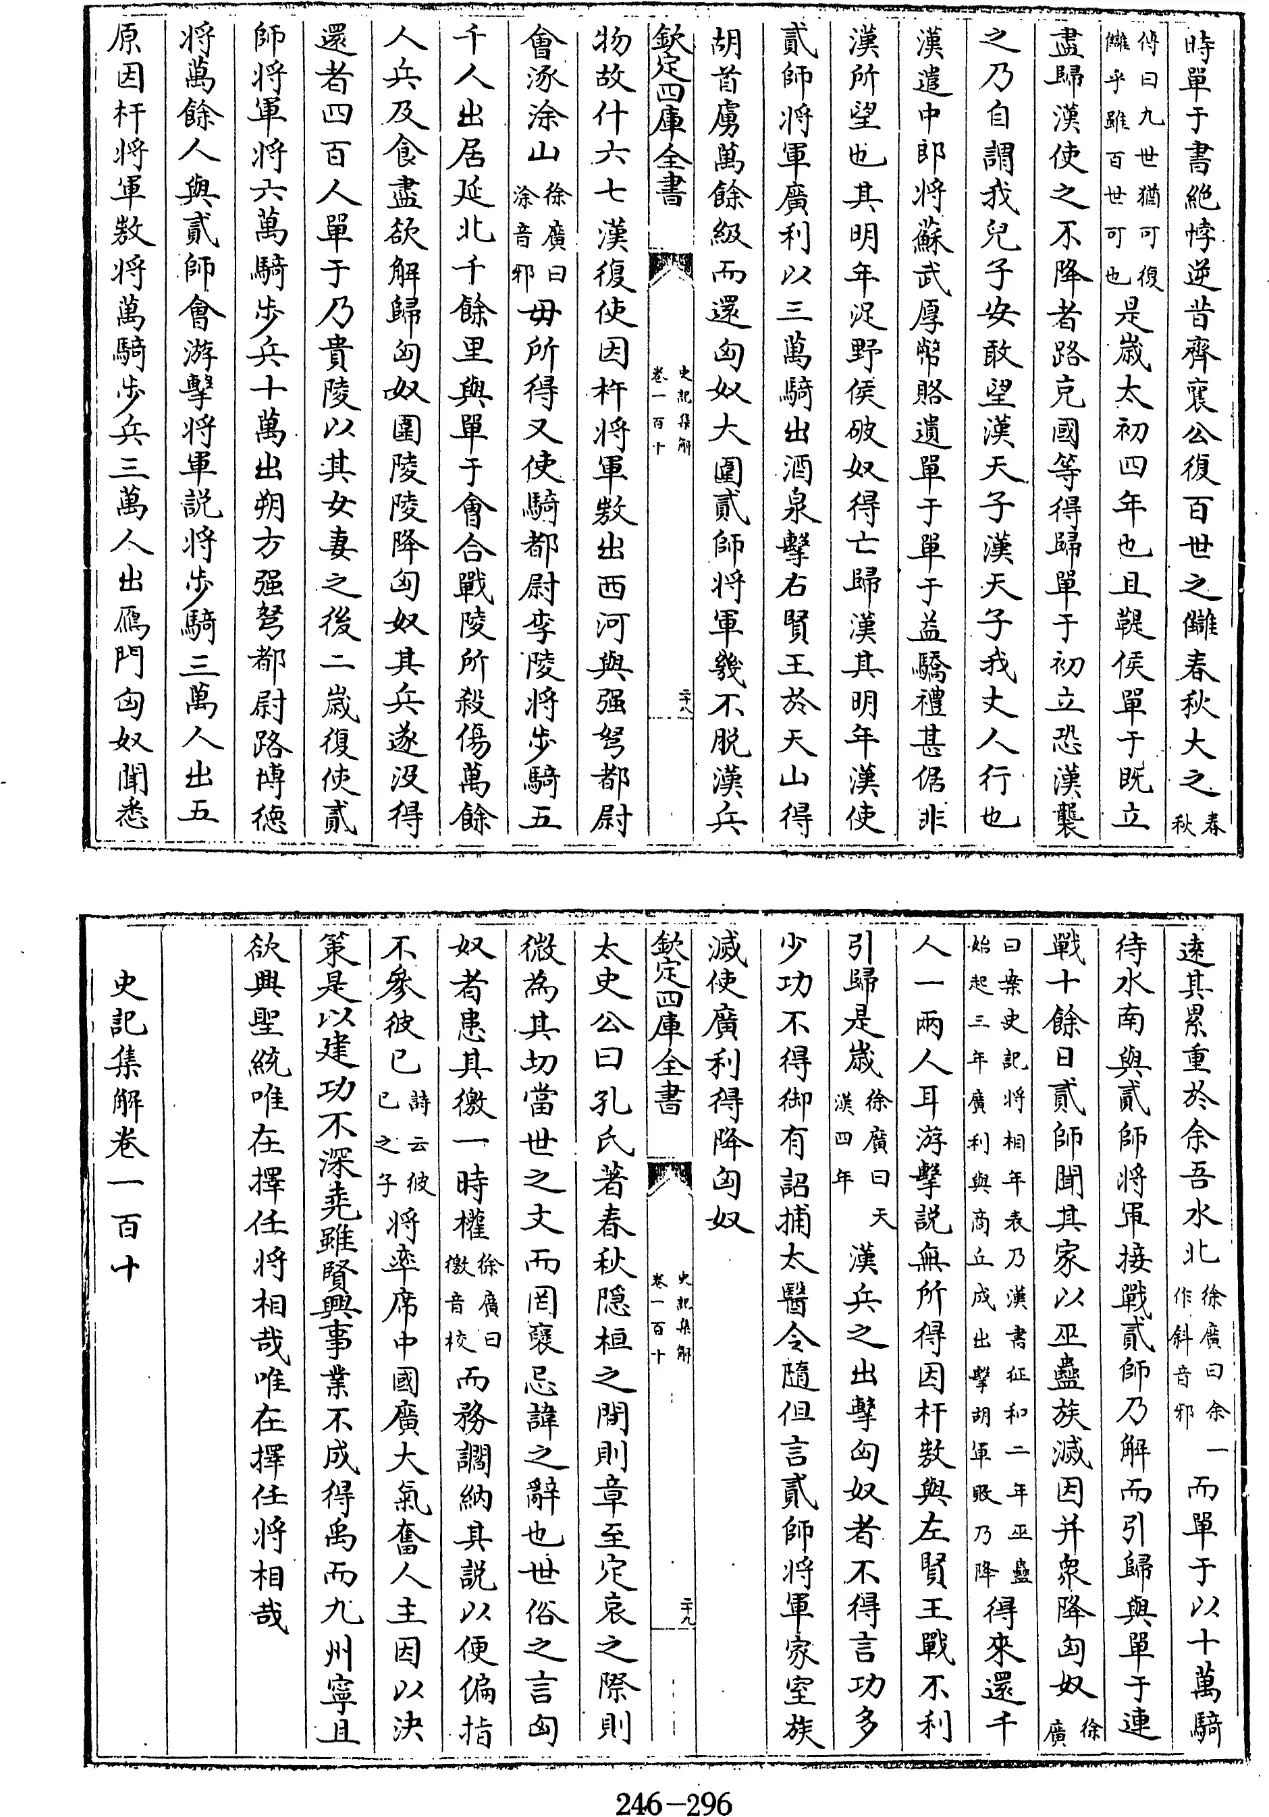 時單于書絕悖逆昔齊襄公復百世之讎春秋大之春秋
傳曰九世猶可復讎乎雖百世可也是歲太初四年也且鞮侯單于既立
盡歸漢使之不降者路充國等得歸單于初立恐漢襲
之乃自謂我兒子安敢望漢天子漢天子我丈人行也
漢遣中郎將蘇武厚幣賂遺單于單于益驕禮甚倨非
漢所望也其明年浞野侯破奴得亡歸漢其明年漢使
貳師將軍廣利以三萬騎出酒泉擊右賢王於天山得
胡首虜萬餘級而還匈奴大圍貳師將軍幾不脱漢兵
欽定四庫全書 史記集解卷一百十 二十八
物故什六七漢復使因杅將軍敖出西河與强弩都尉
會涿涂山徐廣曰涂音邪毋所得又使騎都尉李陵將步騎五
千人出居延北千餘里與單于會合戰陵所殺傷萬餘
人兵及食盡欲解歸匈奴圍陵陵降匈奴其兵遂没得
還者四百人單于乃貴陵以其女妻之後二歲復使貳
師將軍將六萬騎步兵十萬出朔方强弩都尉路博德
將萬餘人與貳師會游擊將軍説將步騎三萬人出五
原因杅將軍敖將萬騎步兵三萬人出鴈門匈奴聞悉
遠其累重於余吾水北徐廣曰余一作斜音邪而單于以十萬騎
待水南與貳師將軍接戰貳師乃解而引歸與單于連
戰十餘日貳師聞其家以巫蠱族滅因并衆降匈奴徐廣
曰案史記將相年表乃漢書征和二年巫蠱始起三年廣利與商丘成出擊胡軍敗乃降得來還千
人一兩人耳游擊説無所得因杅敖與左賢王戰不利
引歸是歲徐廣曰天漢四年漢兵之出擊匈奴者不得言功多
少功不得御有詔捕太醫令隨但言貳師將軍家室族
滅使廣利得降匈奴
欽定四庫全書 史記集解卷一百十 二十九
太史公曰孔氏著春秋隱桓之間則章至定哀之際則
微為其切當世之文而罔襃忌諱之辭也世俗之言匈
奴者患其徼一時權徐廣曰徼音校而務讇納其説以便偏指
不參彼已詩云彼已之子將率席中國廣大氣奮人主因以決
策是以建功不深堯雖賢興事業不成得禹而九州寧且
欲興聖統唯在擇任將相哉唯在擇任將相哉
史記集解卷一百十
246-296